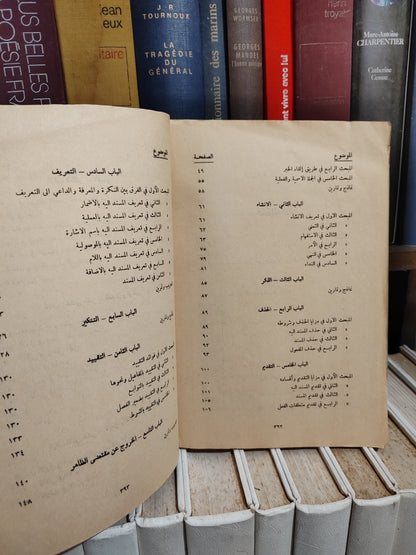 US BELLES P
POÉSIE FR
Jean
eux
J.-R
TOURNOUX
LA
TRAGÉDIE
DU
GÉNÉRAL
onnaire des marins
GEORGES
WORMSER
GEORGES
MANDEL
l'homme politique
ent vivre avec lui
troyat
Marc-Antoine
CHARPENTIER
Catherine
Cessac
الموضوع
الصفحة
المبحث الرابع في طريق إلقاء الخبر
٤٩
المبحث الخامس في الجملة الاسمية والفعلية
٥٥
نماذج وتمارين
٥٨
الباب الثاني – الانشاء
٦١
المبحث الأول في تعريف الانشاء
» الثاني في التمني
» الثالث في الاستفهام
» الرابع في الأمر
٧٥
» الخامس في النهي
» السادس في النداء
٨١
الباب الثالث – الذكر
٨٥
نماذج وتمارين
٨٧
الباب الرابع – الحذف
٨٩
المبحث الأول في مزايا الحذف وشروطه
» الثاني في حذف المسند
» الرابع في حذف المفعول
٩٣
الباب الخامس – التقديم
١٠٠
المبحث الأول في مزايا التقديم وأقسامه
» الثاني في تقديم المسند اليه
» الثالث في تقديم المسند
١٠٥
» الرابع في تقديم متعلقات الفعل
١٠٦
٣٩٢
الموضوع
الباب السادس – التعريف
المبحث الأول في الفرق بين النكرة والمعرفة والداعي الى التعريف
» الثاني في تعريف المسند اليه بالاضمار
» الثالث في تعريف المسند اليه بالعلمية
» الرابع في تعريف المسند اليه بإسم الاشارة
» الخامس في تعريف المسند اليه بالموصولية
» السادس في تعريف المسند اليه باللام
» السابع في تعريف المسند اليه بالاضافة
» الثامن في تعريف المسند
الباب السابع – التنكير
الباب الثامن – التقييد
المبحث الأول في فوائد التقييد
» الثاني في التقييد بالمفاعيل ونحوها
١٣٠
» الثالث في التقييد بالتوابع
١٣٠
» الرابع في التقييد بضمير الفصل
١٣٠
» الخامس في التقييد بالشرط
١٣٣
الباب التاسع – الخروج عن مقتضى الظاهر
١٣٤
١٤٠
١٤٨
٣٩٣